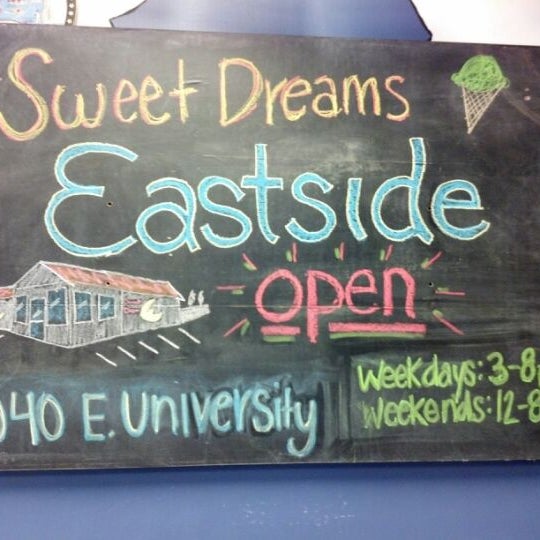 Sweet Dreams
Eastside
open
Weekdays: 3-8
Weekends: 12-8
040 E. University